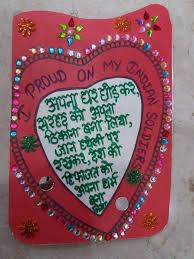 I PROUD ON MY INDIAN SOLDIER
अपना घर छोड़ कर,
सरहद को अपना
ठिकाना बना लिया,
जान हथेली पर
रखकर, देश की
हिफाजत को
अपना धर्म
बना